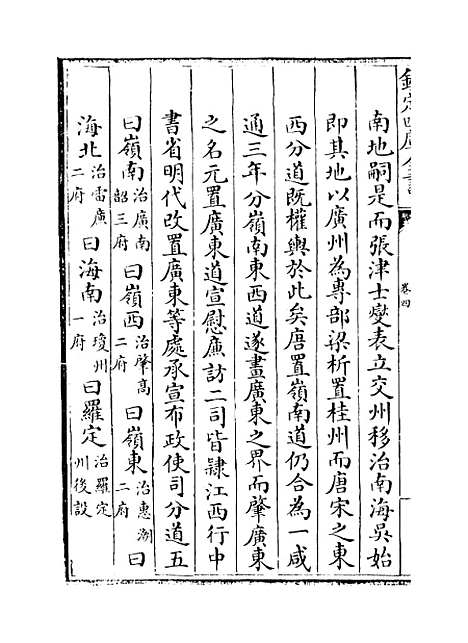 欽定四庫全書
卷四
南地嗣是而張津士燮表立交州移治南海吳始
即其地以廣州為專部梁析置桂州而唐宋之東
西分道既權輿於此矣唐置嶺南道仍合為一咸
通三年分嶺南東西道遂畫廣東之界而肇廣東
之名元置廣東道宣慰廉訪二司皆隸江西行中
書省明代改置廣東等處承宣布政使司分道五
曰嶺南治廣南韶三府曰嶺西治肇高二府曰嶺東治惠潮二府曰
海北治雷廉二府曰海南治瓊州一府曰羅定治羅定州後設